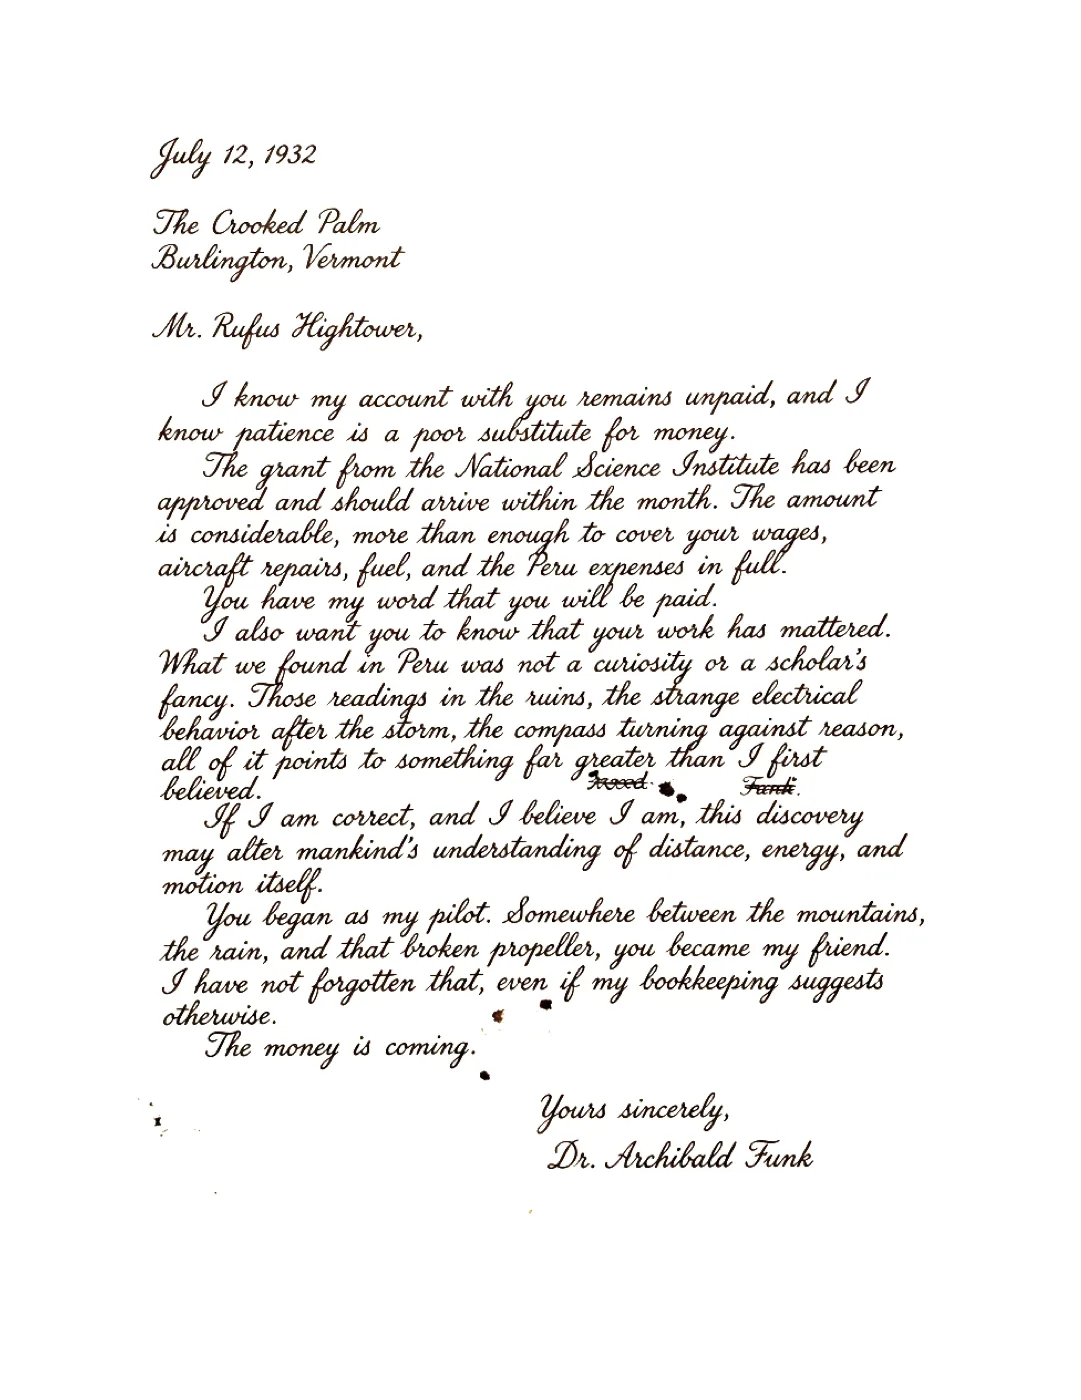 July 12, 1932
The Crooked Palm
Burlington, Vermont
Mr. Rufus Hightower,
I know my account with you remains unpaid, and I
know patience is a poor substitute for money.
The grant from the National Science Institute has been
approved and should arrive within the month. The amount
is considerable, more than enough to cover your wages,
aircraft repairs, fuel, and the Peru expenses in full.
You have my word that you will be paid.
I also want you to know that your work has mattered.
What we found in Peru was not a curiosity or a scholar's
fancy. Those readings in the ruins, the strange electrical
behavior after the storm, the compass turning against reason,
all of it points to something far greater than I first
believed. Funk.
If I am correct, and I believe I am, this discovery
may alter mankind's understanding of distance, energy, and
motion itself.
You began as my pilot. Somewhere between the mountains,
the rain, and that broken propeller, you became my friend.
I have not forgotten that, even if my bookkeeping suggests
otherwise.
The money is coming.
Yours sincerely,
Dr. Archibald Funk